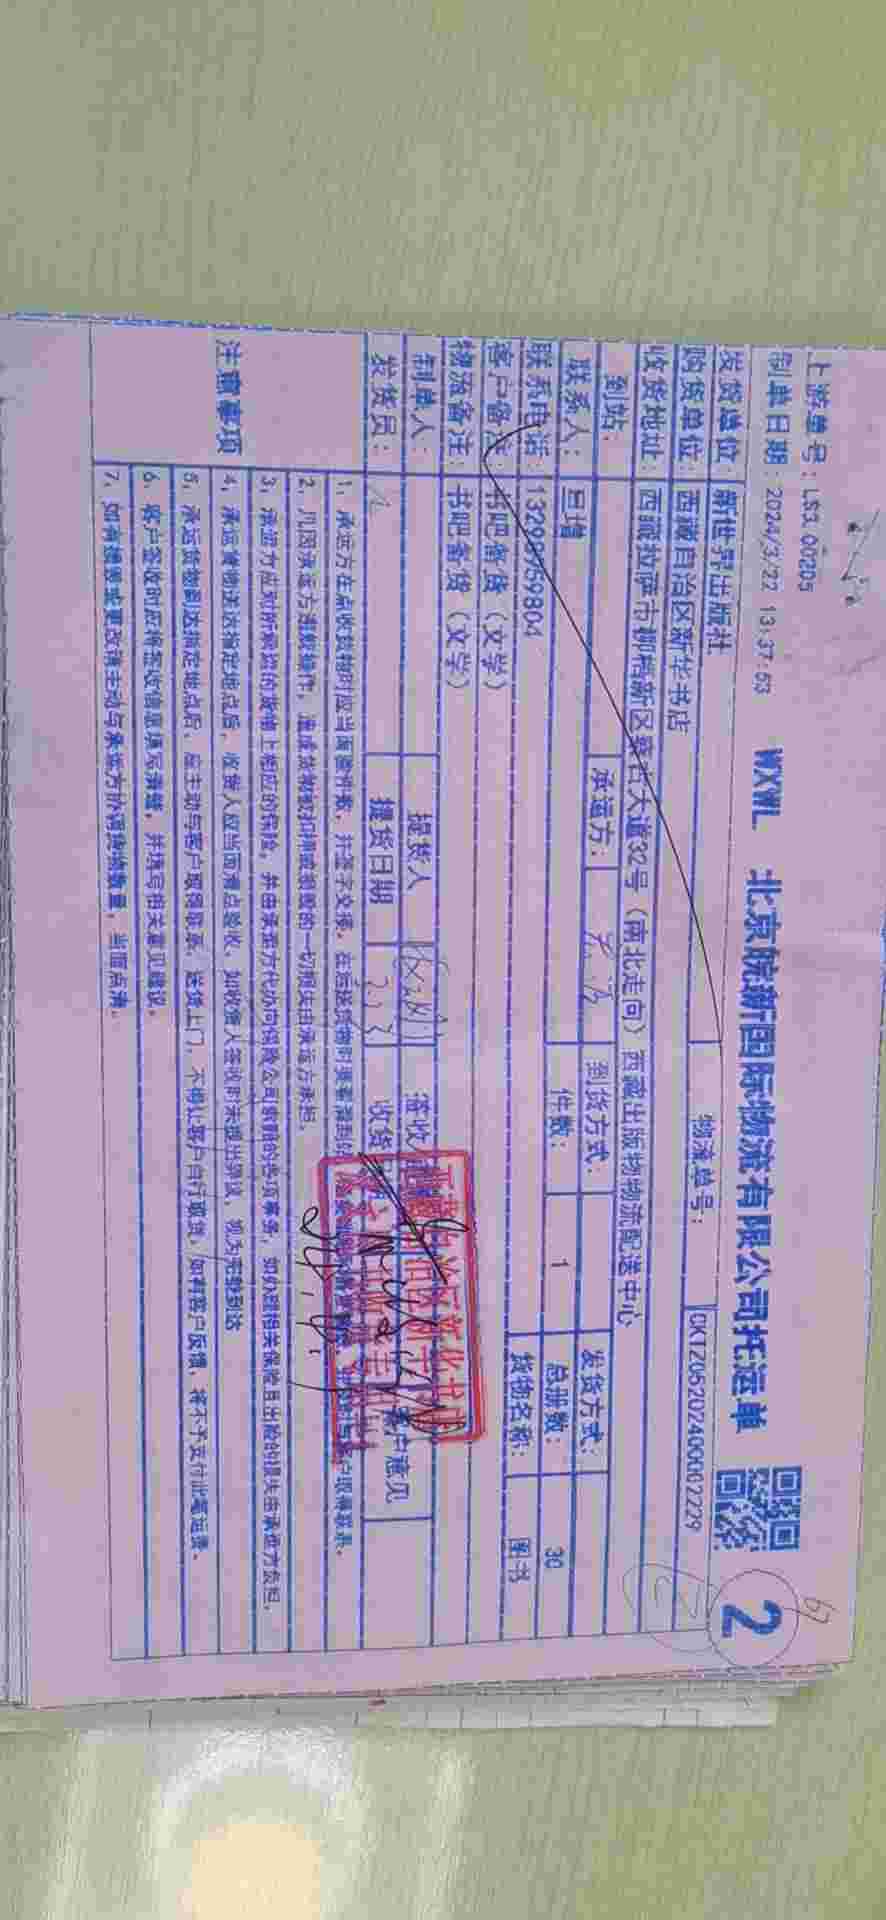 上游单号：LS3.00205
制单日期：2024/3/22 13:37:53 WXWL 北京皖新国际物流有限公司托运单 2
发货单位：新世界出版社 物流单号： CKTZ05202400002229
购货单位：西藏自治区新华书店
收货地址：西藏拉萨市柳梧新区察古大道32号（南北走向）西藏出版物物流配送中心
到站： 承运方： 到货方式： 发货方式：
联系人：旦增 件数： 1 总册数： 30
联系电话：13298959804 货物名称： 图书
客户备注：书吧备货（文学）
物流备注：书吧备货（文学）
制单人： 提货人 签收人 客户意见
发货员： 提货日期 收货
注意事项
1、承运方在点收货物时应当面签件数，并签字交接。
2、凡因承运方违规操作，造成货物被扣押或损毁的一切损失由承运方承担。
3、承运方应对所承运的货物上相应的保险，并由承运方代办向保险公司索赔的各项事务，如办理相关保险且出险的损失由承运方负担。
4、承运货物送达指定地点后，收货人应当面清点验收，如收货人签收时未提出异议，视为完整到达
5、承运货物到达指定地点后，应主动与客户取得联系，送货上门，不得让客户自行取货，如有客户反馈，将不予支付此笔运费。
6、客户签收时应将签收信息填写清楚，并填写相关意见建议。
7、如有损毁或更改请主动与承运方协调货物数量，当面点清。